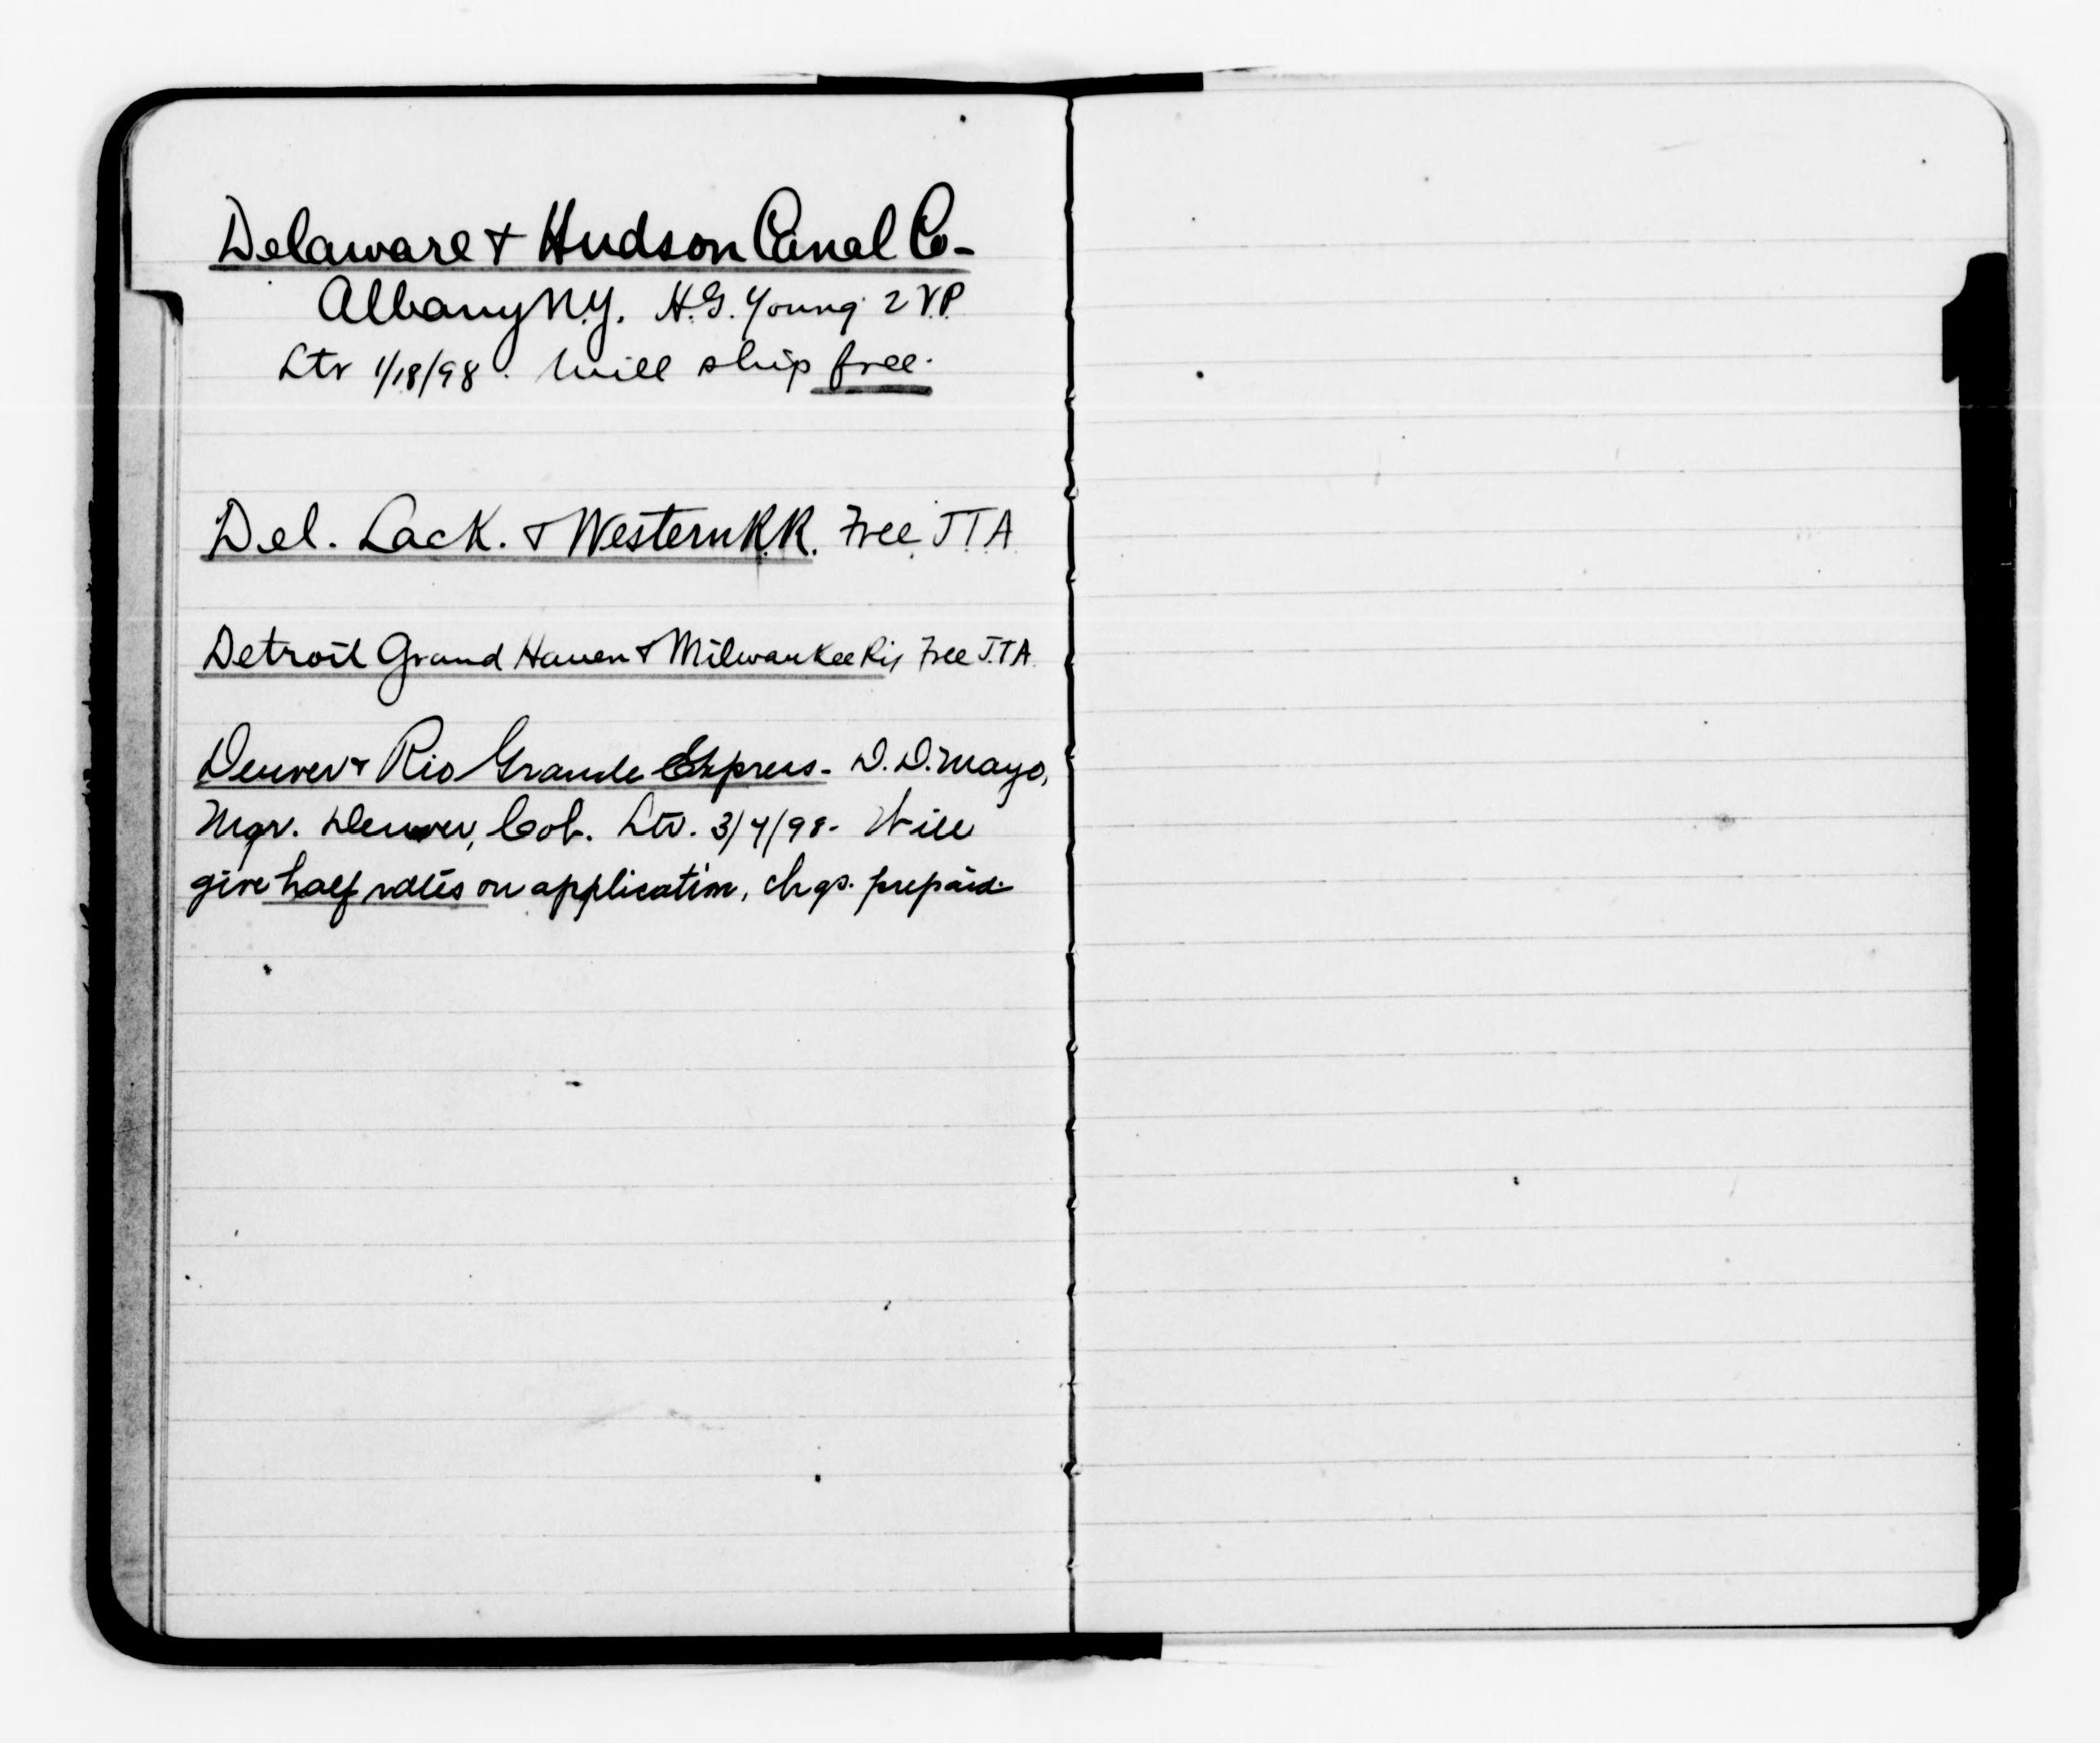 Delaware & Hudson Canal Co-
Albany N.Y. H.G. Young 2 V.P.
Ltr 1/18/98. Will ship free.
Del. Lack. & Western R.R. Free J.T.A.
Detroit Grand Haven & Milwaukee Ry Free J.T.A.
Denver & Rio Grande Express- D.D. Mayo,
Mgr. Denver, Col. Ltr. 3/7/98- Will
give half rates on application, chgs. prepaid-